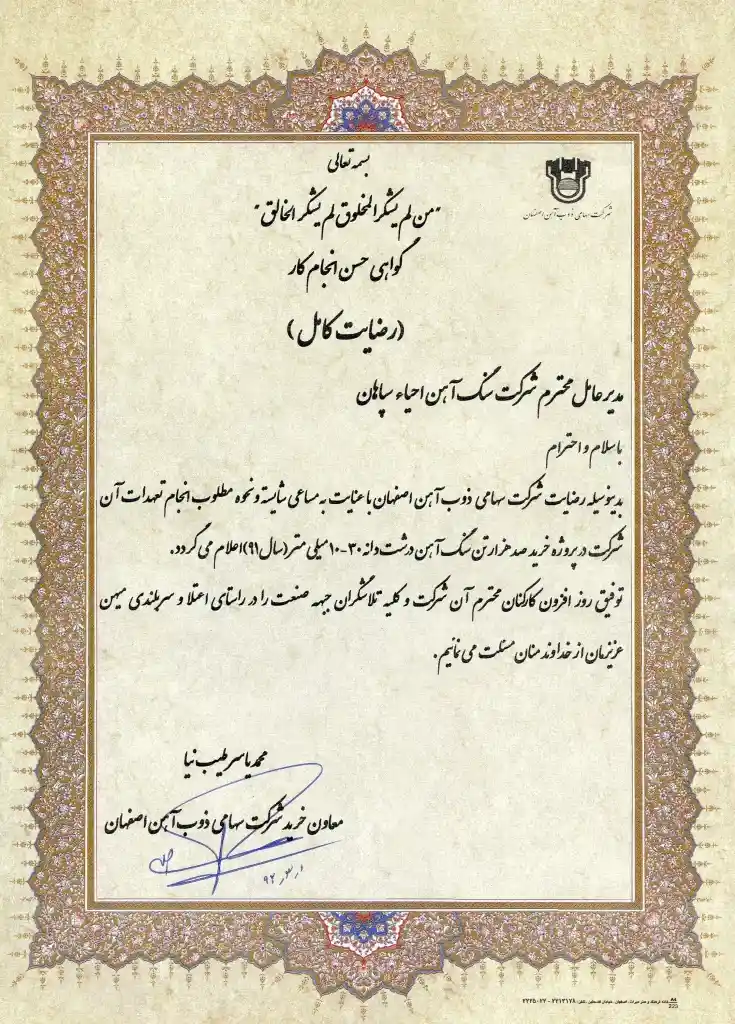 بسمه تعالی
شرکت سهامی ذوب آهن اصفهان
"من لم یشکر المخلوق لم یشکر الخالق"
گواهی حسن انجام کار
(رضایت کامل)
مدیر عامل محترم شرکت سنگ آهن احیاء سپاهان
با سلام و احترام
بدینوسیله رضایت شرکت سهامی ذوب آهن اصفهان با عنایت به مساعی شایسته و نحوه مطلوب انجام تعهدات آن
شرکت در پروژه خرید صد هزار تن سنگ آهن درشت دانه ۳۰-۱۰ میلی متر (سال ۹۱) اعلام می گردد.
توفیق روز افزون کارکنان محترم آن شرکت و کلیه تلاشگران جبهه صنعت را در راستای اعتلا و سربلندی میهن
عزیزمان از خداوند منان مسئلت می نمائیم.
محمد یاسر طیب نیا
معاون خرید شرکت سهامی ذوب آهن اصفهان